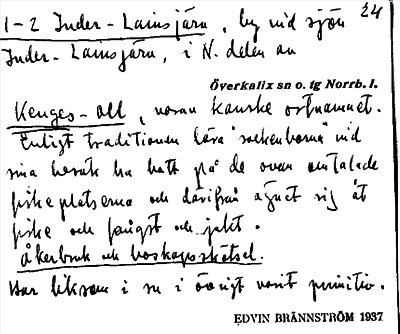 24
1-2 Inder-Lainsjärv, by vid sjön
Inder-Lainsjärv, i N. delen av
Överkalix sn o. tg Norrb. l.
Kenges-all, varav kanske ortnamnet.
Enligt traditionen lära "sockenborna" vid
sina besök ha haft på de ovan omtalade
fiskeplatserna och därifrån ägnat sig åt
fiske och fångst och jakt.
Åkerbruk och boskapsskötsel.
Har liksom i sn i övrigt varit primitiv.
EDVIN BRÄNNSTRÖM 1937